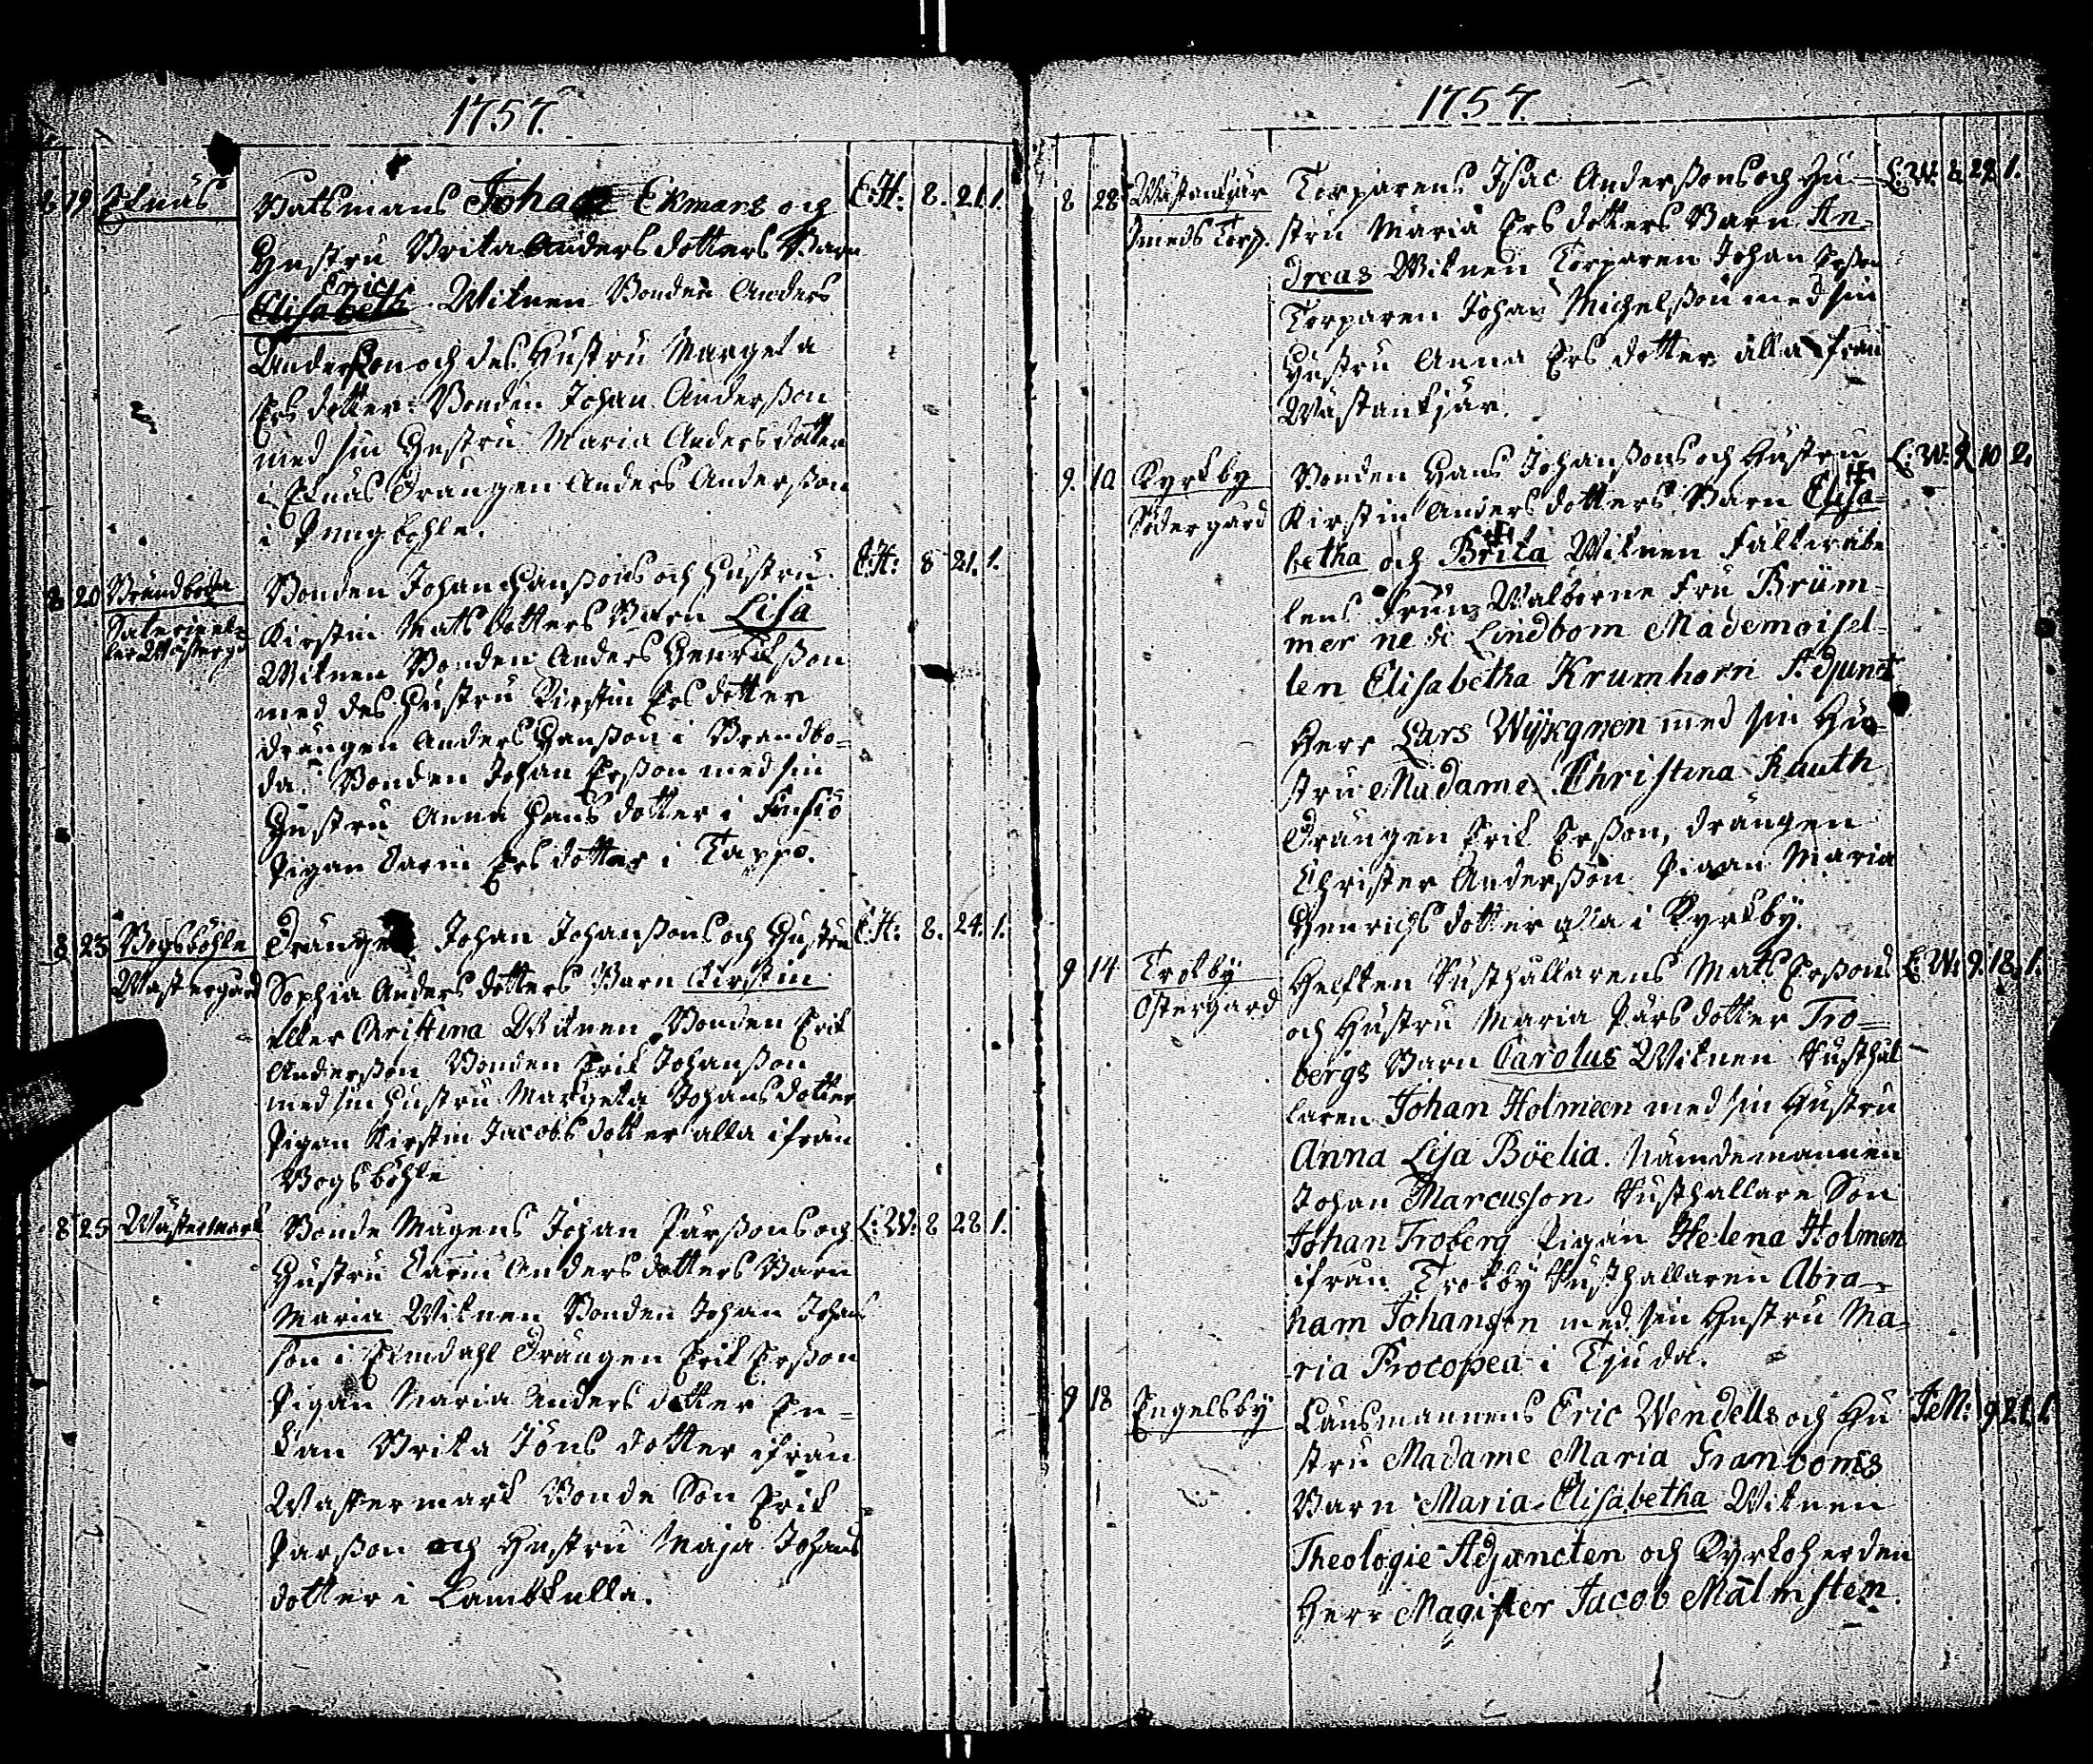 1757.
8 19 Eknäs Båtsmans Johan Ekmans och E:H: 8. 21. 1.
Hustru Brita Anders dotters Barn
Eric
Elisabeth Witnen Bonden Anders
Anderßon och des Hustru Margeta
Ers dotter: Bonden Johan Anderßon
med sin Hustru Maria Anders dotter
i Eknäs Drängen Anders Anderßon
i Pungböhle.
8 20 Brändboda Bonden Johan Hanßons och Hustru E:H: 8 21. 1.
Kirstin Mats dotters Barn Lisa
Witnen Bonden Anders Henrichßon
med des Hustru Kirstin Ers dotter
drängen Anders Hanßon i Brandbo-
da. Bonden Johan Erßon med sin
Hustru Anna Hans dotter i
Pigan Carin Ers dotter i Tappo.
8 23 Bogsböhle Drängen Johan Johanßons och Hustru E:H: 8. 24. 1.
Wästergård Sophia Anders dotters Barn Kirstin
eller Christina Witnen Bonden Erik
Anderßon Bonden Erik Johanßon
med sin Hustru Margeta Johans dotter
Pigan Kirstin Jacobs dotter alla ifrån
Bogsböhle
8 25 Wästermark Bonde Magens Johan Pärßons och L:W: 8 28 1.
Hustru Carin Anders dotters Barn
Maria Witnen Bonden Johan Johans
son i Elmdahl Drängen Erik Erßon
Pigan Maria Anders dotter En-
kan Brita Jöns dotter ifrån
Wästermark Bonde Son Erik
Parßon och Hustru Maja Johans
dotter i Lambkulla.
1757.
8 28 Wästankjär Torparens Isac Anderßons och Hu- L:W: 8 29. 1.
Smeds Torp. stru Maria Ers dotters Barn An-
dreas Witnen Torparen Johan Erßon
Torparen Johan Michelßon med sin
Hustru Anna Ers dotter alla ifrån
Wästankjär.
9. 10 Kyrkby Bonden Hans Johanßons och Hustru L:W: 9 10 2.
Södergård Kirstin Anders dotters Barn Elisa-
betha och Brita Witnen Fältwäbe
lens Fru Walborne Fru Brüm-
mer ne de Lindbom Mademoisel-
len Elisabetha Krumhorn Adjunct
Herr Lars Wijkgren med sin Hu-
stru Madame Christina Rauth
Drängen Erik Erßon, drängen
Christer Anderßon Pigan Maria
Henrichs dotter alla i Kyrkby.
9 14 Trotby Helften Rusthållarens Mats Erßons L:W: 9. 18. 1.
Östergård och Hustru Maria Pärs dotter Tro-
bergs Barn Carolus Witnen Rusthål-
laren Johan Holmeen med sin Hustru
Anna Lisa Böelia. Nämdemannen
Johan Marcusson Rusthållare Son
Johan Troberg Pigan Helena Holmen
ifrån Trotby Rusthållaren Abra-
ham Johanson med sin Hustru Ma-
ria Procopea i Tjuda.
9 18 Engelsby Länsmannens Eric Wendells och Hu J:M: 9 21. 1.
stru Madame Maria Granboms
Barn Maria Elisabetha Witnen
Theologie Adjuncten och Kyrkoherden
Herr Magister Jacob Malmsten.